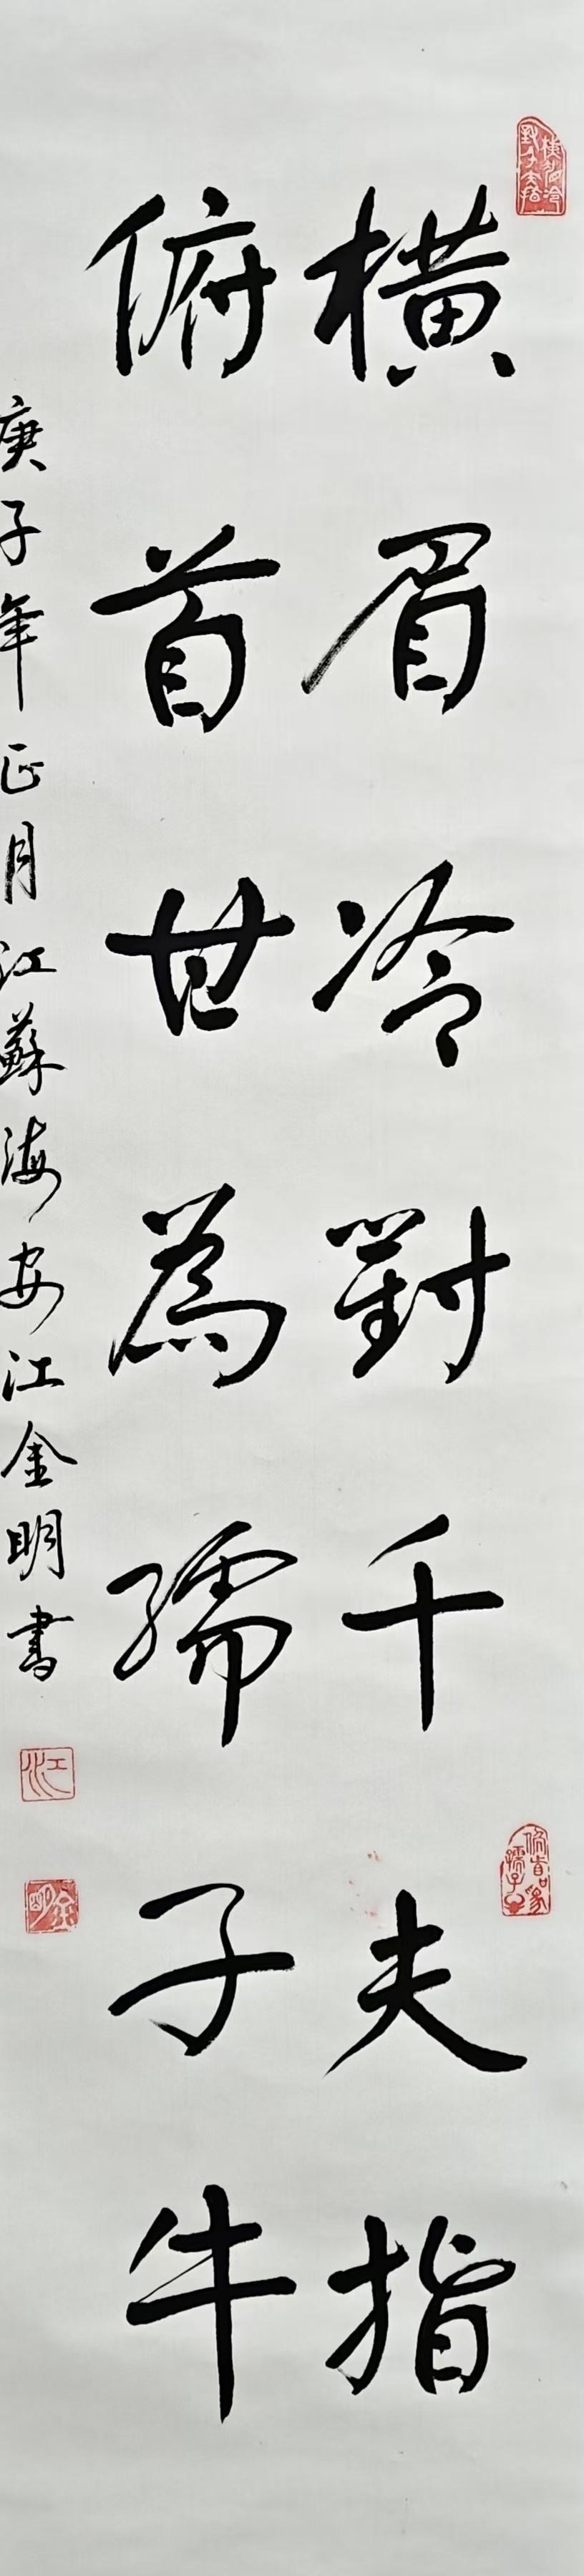 橫眉冷對千夫指
俯首世為孺子牛
庚子年正月江蘇海安江金明書
江
金明